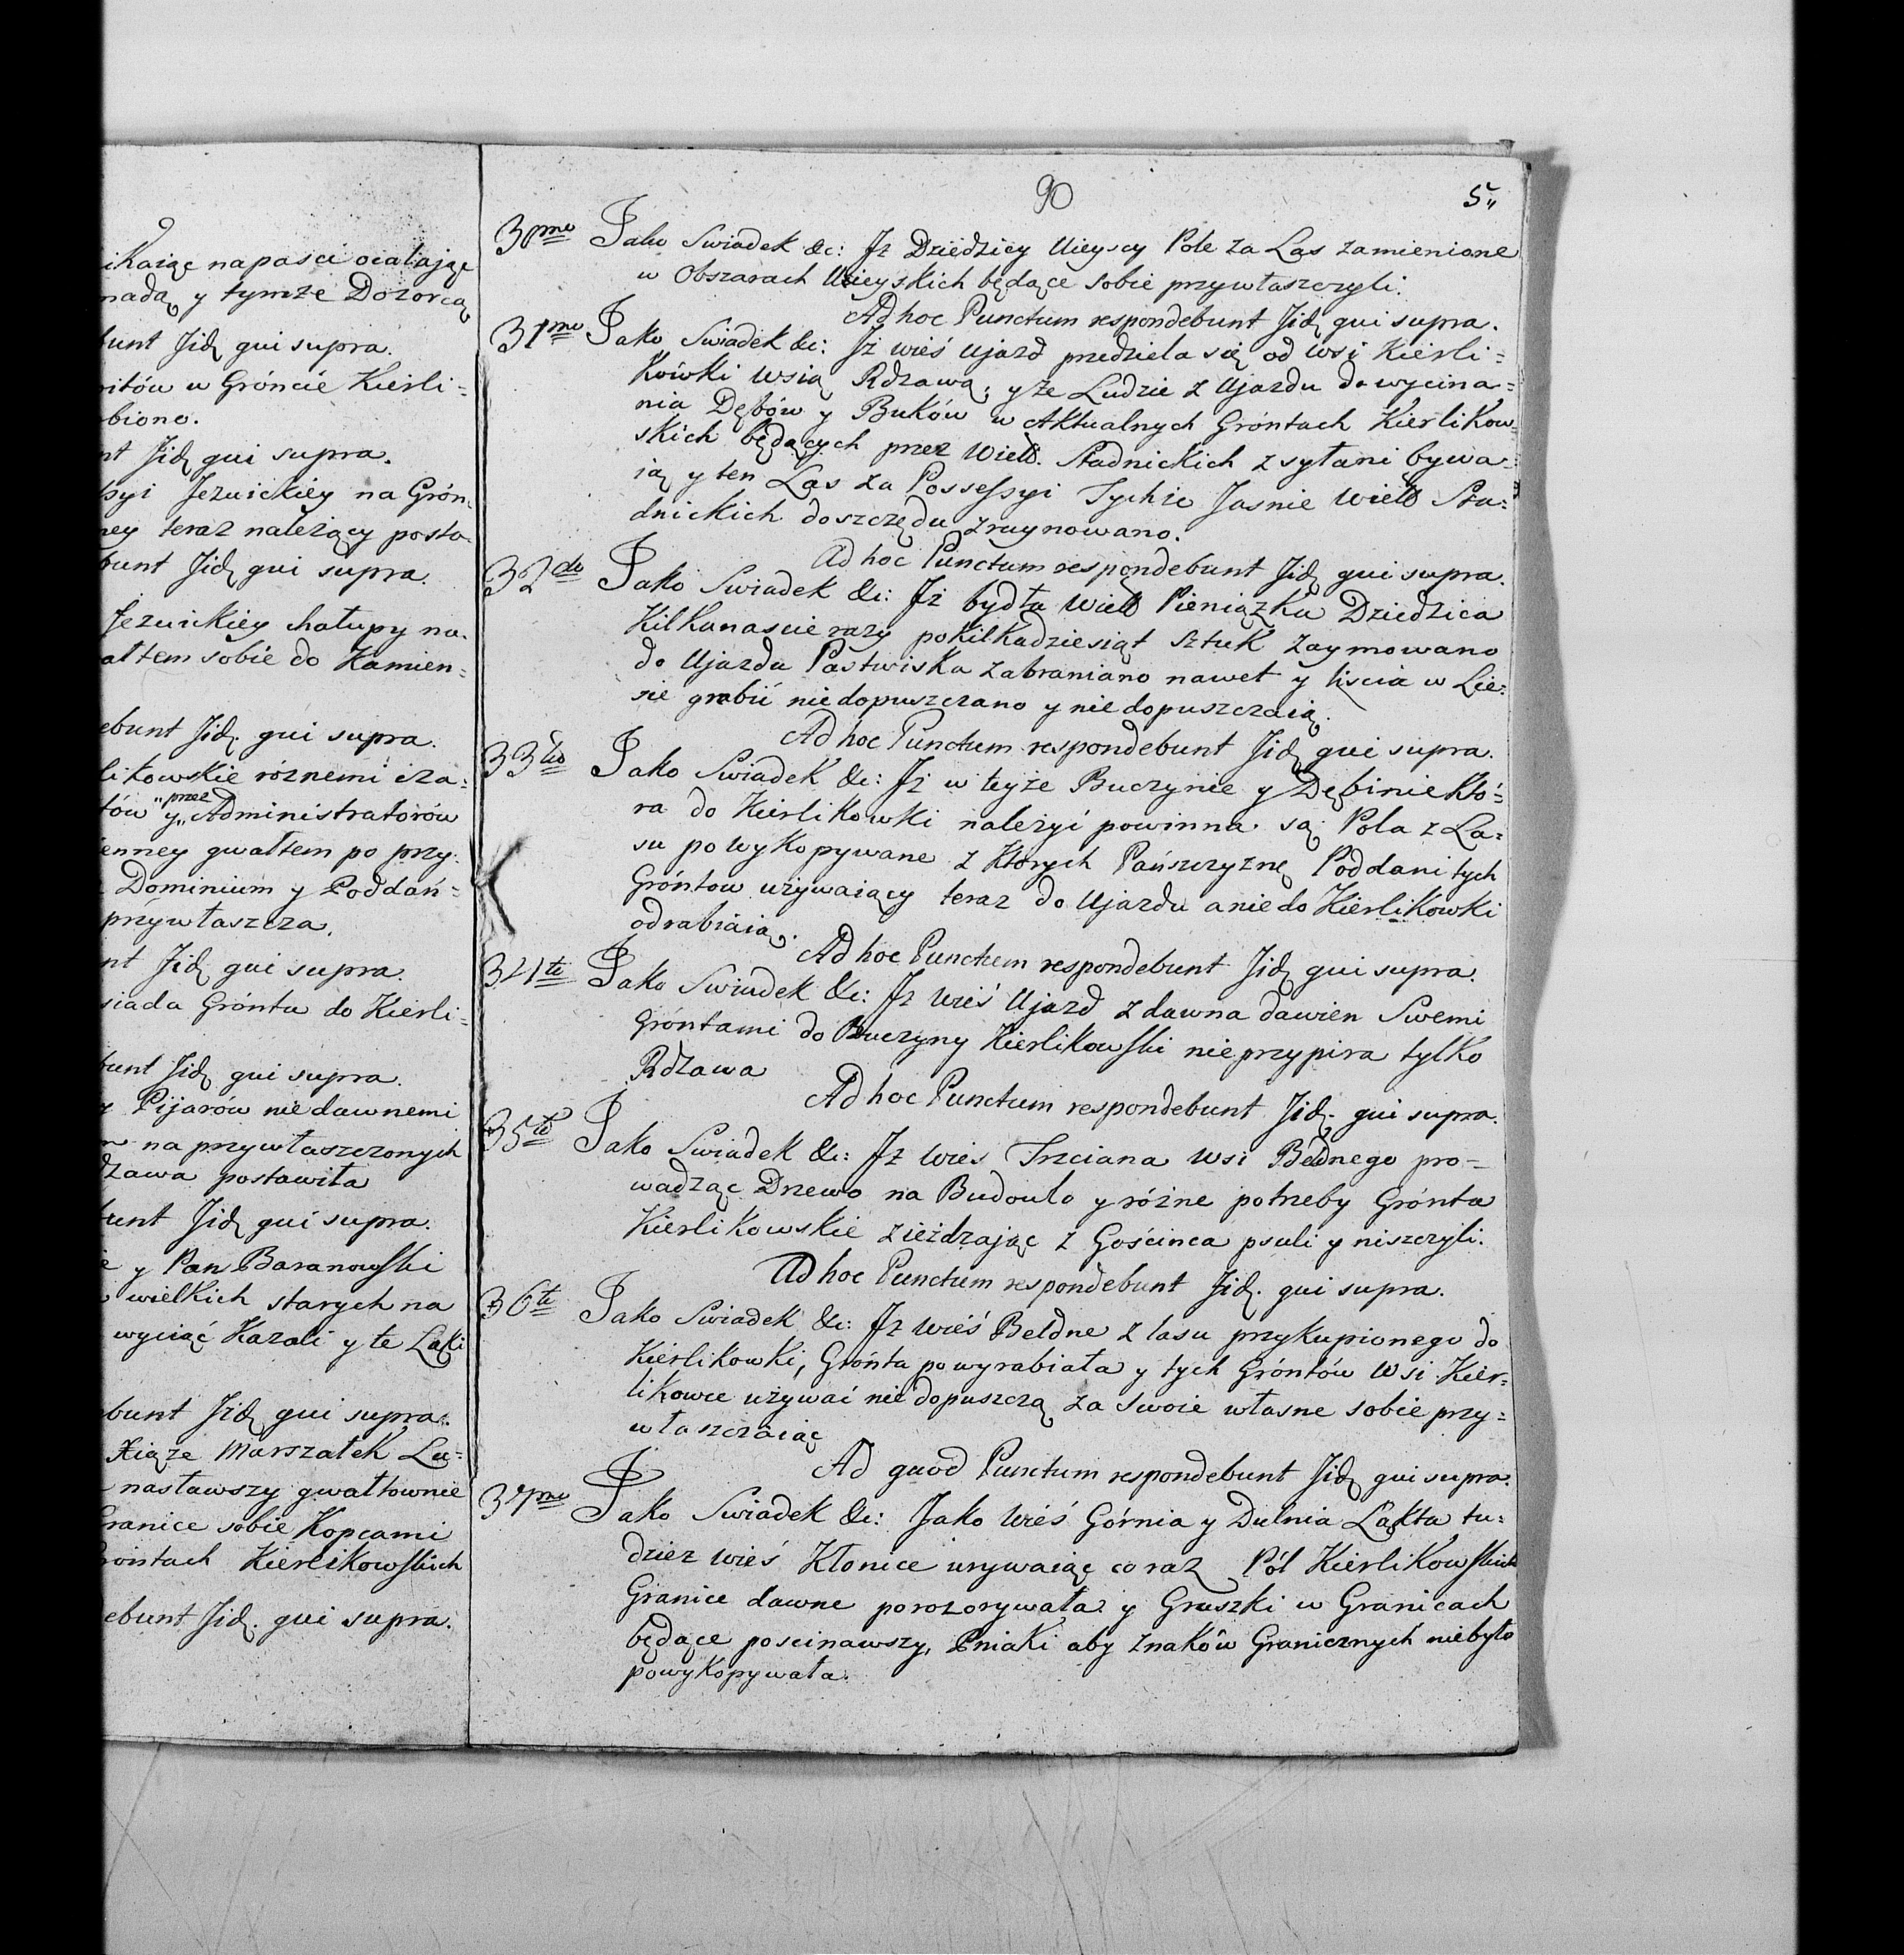 ikaiąc napaści ocalając
nadą y tymże Dozorcą
bunt Jid. qui supra.
itów w Gróncie Kierli=
biono.
nt Jid. qui supra.
syi Jezuickiéy na Grón=
ney teraz należący posta=
bunt Jid. qui supra.
Jezuickiéy chałupy na=
ałtem sobie do Kamien=
ebunt Jid. qui supra.
likowskie róznemi cza=
tów "przez
y„ Administratorów
enney gwałtem po przy=
Dominium y Poddań=
przywłaszcza.
nt Jid. qui supra.
siada Gróntu do Kierli=
bunt Jid. qui supra.
Pijarów niedawnemi
na przywłaszczonych
dzawa postawiła
bunt Jid. qui supra.
y Pan Baranowski
wielkich starych na
wyciąć Kazali y te Łąki
bunt Jid. qui supra.
Xiąże Marszałek Lu=
nasławszy gwałtownie
Granice sobie Kopcami
Gróntach Kierlikowskich
ebunt Jid. qui supra.
90
5„
30mo Jako Swiadek &c: Jż Dziedzicy Uieyscy Pole za Las zamienione
w Obszarach Uieyskich będące sobie przywłaszczyli.
Ad hoc Punctum respondebunt Jid. qui supra.
31mo Jako Swiadek &c: Jż wieś Ujazd przedziela się od wsi Kierli=
kówki wsią Rdzawą, y że Ludzie z Ujazdu do wycina=
nia Dębów y Buków w Aktualnych Gróntach Kierlikow=
skich będących przez Wiel. Stadnickich zsyłani bywa=
ią y ten Las za Possessyi Tychże Jasnie Wiel Sta=
dnickich do szczędu zruynowano.
Ad hoc Punctum respondebunt Jid. qui supra.
32do Jako Swiadek &c: Jż bydła Wiel Pieniążka Dziedzica
Kilkanascie razy po Kilkadziesiąt sztuk zaymowano
do Ujazdu Pastwiska zabraniano nawet y liścia w Lie=
sie grabić niedopuszczano y niedopuszczaią.
Ad hoc Punctum respondebunt Jid. qui supra.
33tio Jako Swiadek &c: Jż w teyże Buczynie y Dębinie Któ=
ra do Kierlikowki należyć powinna są Pola z La=
su powykopywane z Których Pańszczyznę Poddani tych
Gróntow używaiący teraz do Ujazdu a nie do Kierlikowki
odrabiaią.
Ad hoc Punctum respondebunt Jid. qui supra.
34to Jako Swiadek &c: Jż wieś Ujazd z dawna dawien Swemi
Gróntami do Buczyny Kierlikowski nie przypira tylko
Rdzawa
Ad hoc Punctum respondebunt Jid. qui supra.
35to Jako Swiadek &c: Jż wies Trzciana wsi Bełdnego pro=
wadząc Drzewo na Budowlo y różne potrzeby Grónta
Kierlikowskie zieżdzając z Gościnca psuli y niszczyli.
Ad hoc Punctum respondebunt Jid. qui supra.
36to Jako Swiadek &c: Jż wieś Bełdne z lasu przykupionego do
Kierlikowki, Grónta powyrabiała y tych Gróntów wsi Kier=
likowce używać niedopuszczą za swoie własne sobie przy=
właszczaiąc
Ad quod Punctum respondebunt Jid. qui supra.
37mo Jako Swiadek &c: Jako wieś Górnia y Dulnia Łąkta tu=
dzież wieś Kłonice urywaiąc coraz Pól Kierlikowskich
Granice dawne porozorywała y Gruszki w Granicach
będące poscinawszy, Pniaki aby znaków Granicznych niebyło
powykopywała.